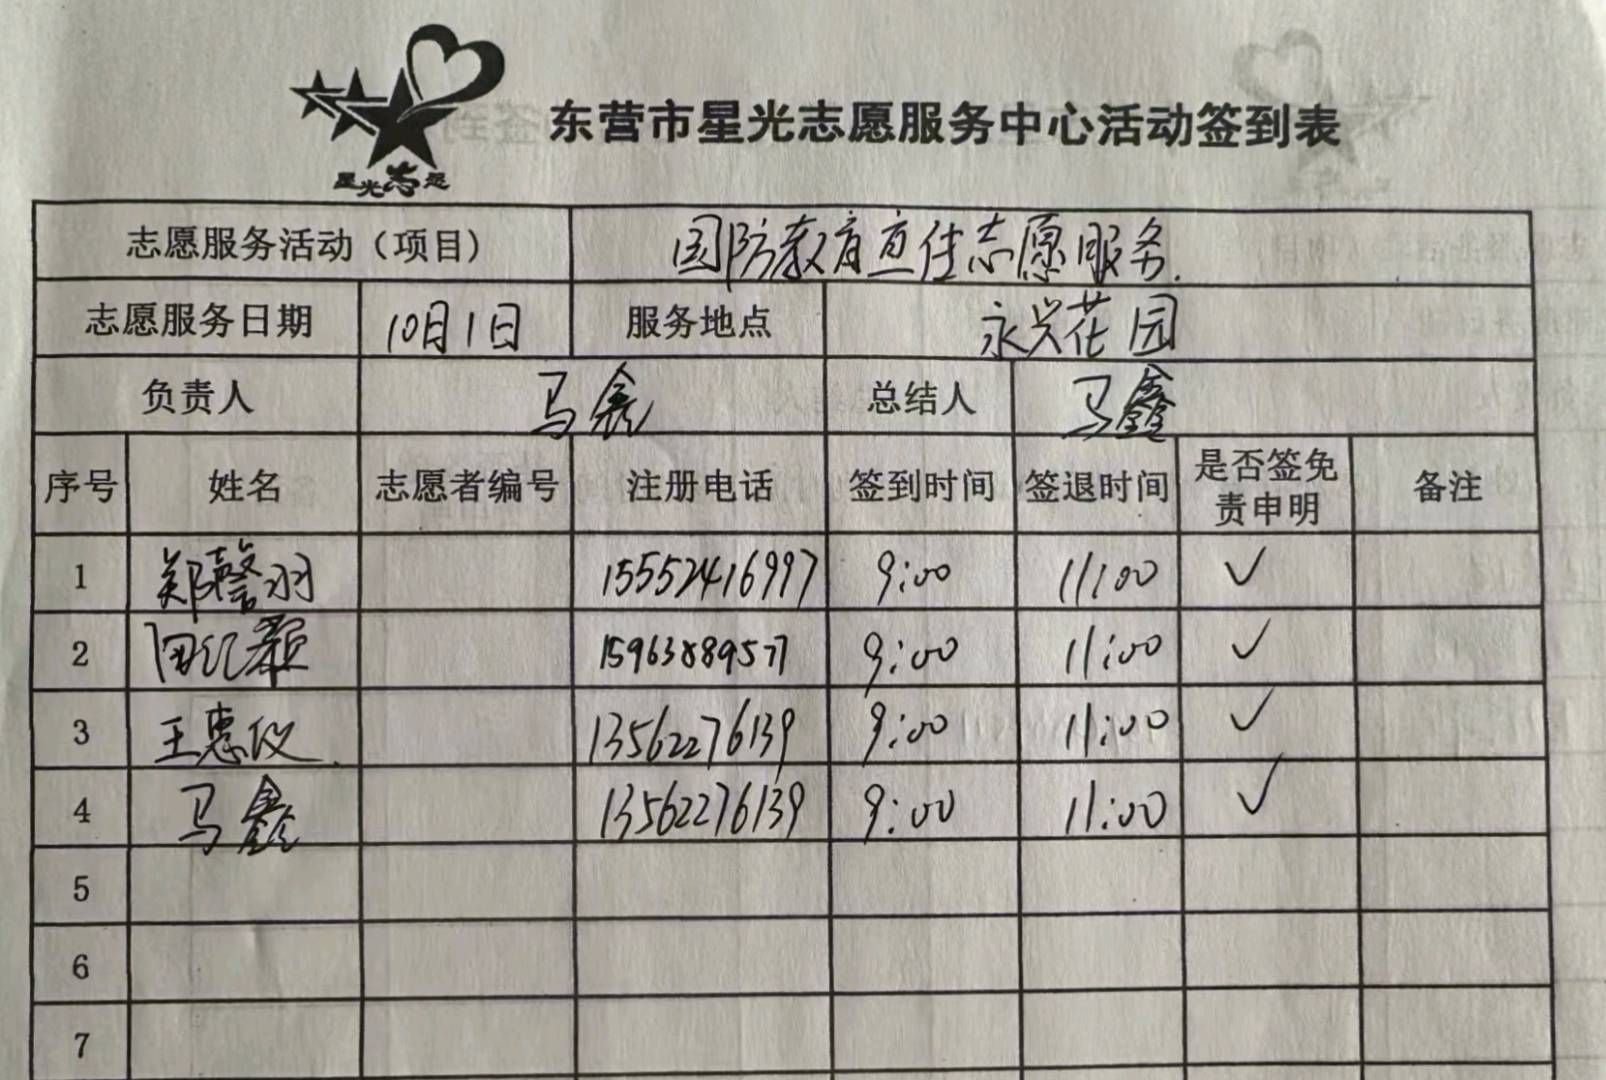 星光志愿
东营市星光志愿服务中心活动签到表
志愿服务活动（项目） 国防教育宣传志愿服务.
志愿服务日期 10月1日 服务地点 永兴花园
负责人 马鑫 总结人 马鑫
序号 姓名 志愿者编号 注册电话 签到时间 签退时间 是否签免责申明 备注
1 郑警羽 15552416997 9:00 11:00 ✓
2 田红 15963889577 9:00 11:00 ✓
3 王惠仪 13562276139 9:00 11:00 ✓
4 马鑫 13562276139 9:00 11:00 ✓
5
6
7